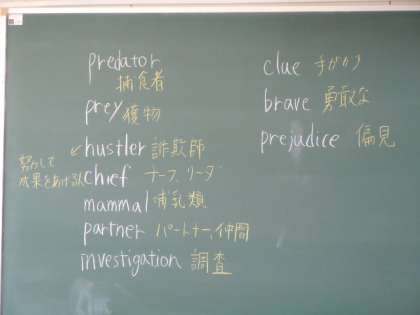 predator
捕食者
prey 獲物
hustler 詐欺師
努力して
成果をあげる人
chief チーフ、リーダー
mammal 哺乳類
partner パートナー、仲間
investigation 調査
clue 手がかり
brave 勇敢な
prejudice 偏見